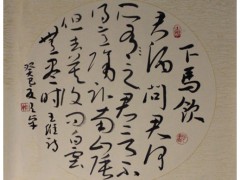 下馬飲
君酒問君何
所之君言不
得意歸臥南山陲
但去莫復問白雲
無盡時 王維詩
癸巳夏